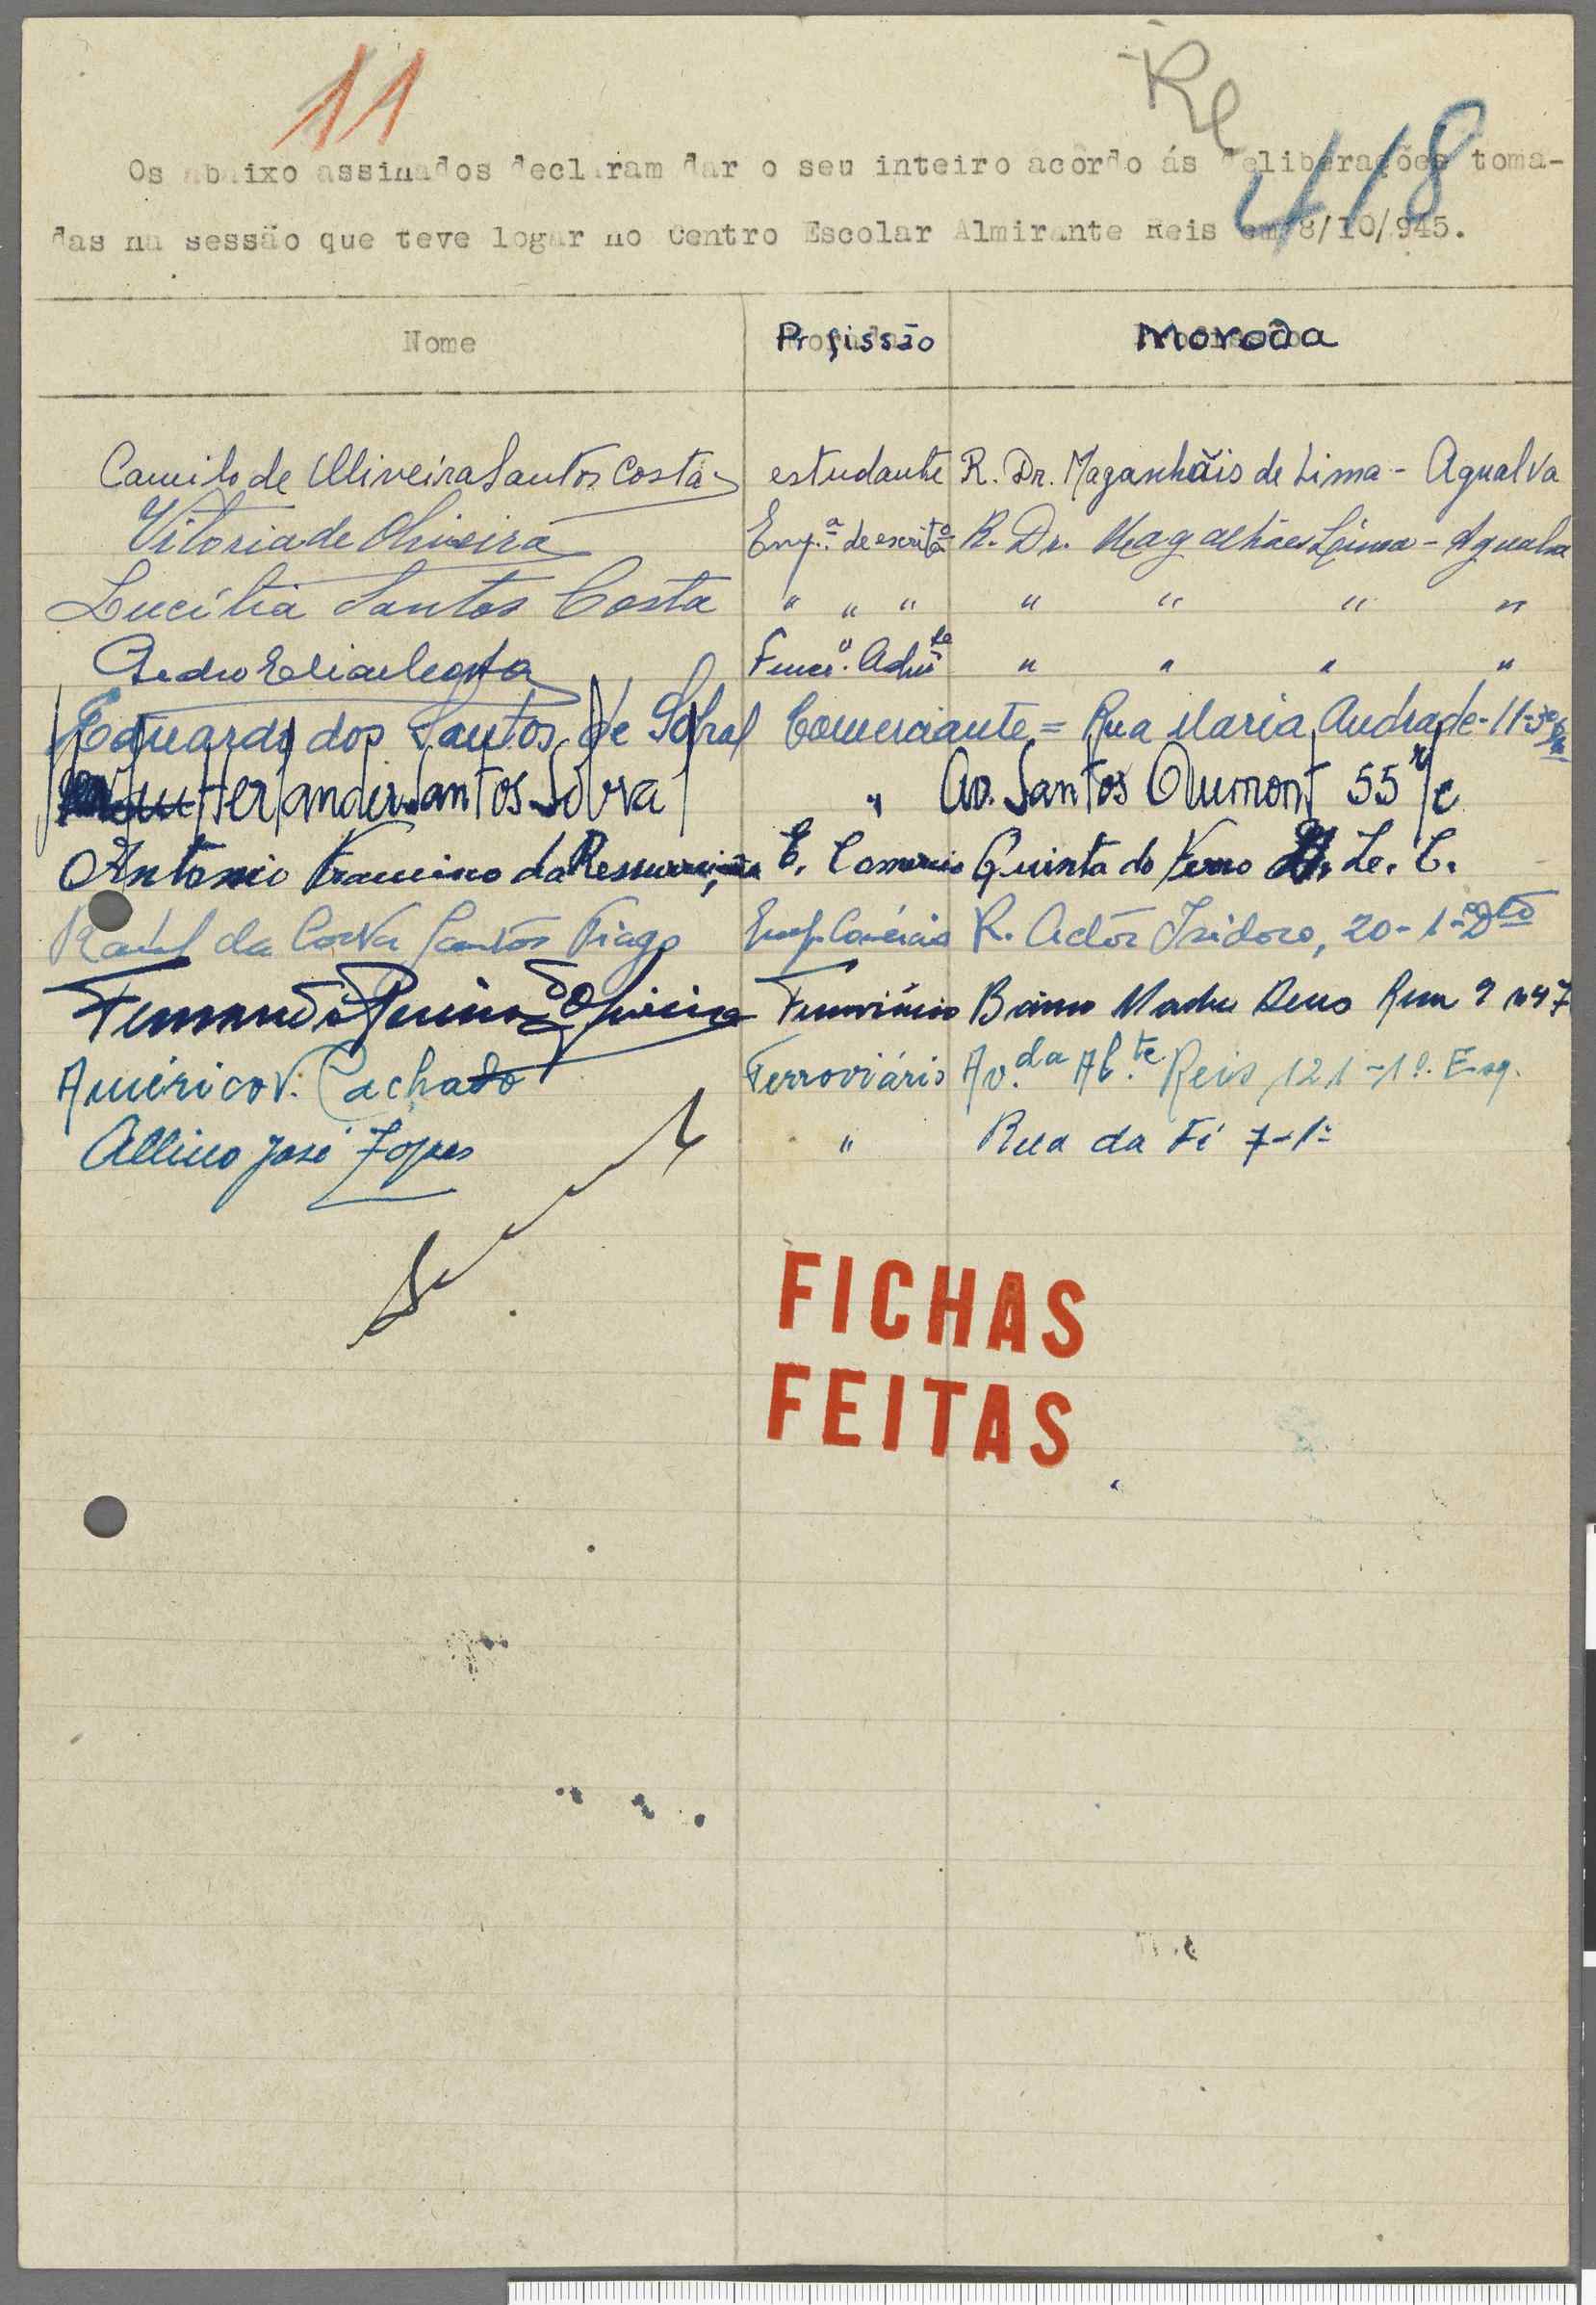 11
Re
418
Os abaixo assinados declaram dar o seu inteiro acôrdo ás deliberações toma-
das na sessão que teve logar no Centro Escolar Almirante Reis em 8/10/945.
Nome Profissão Morada
Camilo de Oliveira Santos Costa estudante R. Dr. Maganhãis de Lima - Agualva
Vitoria de Oliveira Emp.ª de escritº R. Dr. Magalhães Lima - Agualva
Lucília Santos Costa " " " " " " "
Pedro Elias Costa Funcº. Admª " " " "
Eduardo dos Santos de Sobral Comerciante = Rua Maria Andrade - 11-3º
Hernander Santos Silva " Av. Santos Dumont 55 r/c
Antonio Francisco da Ressurreição E. Comercio Quinta do Ferro Le. C.
Raúl da Costa Santos Tiago Emp. Comércio R. Actôr Isidoro, 20-1º Dtº
Fernando Pereira d'Oliveira Ferroviário Bairro Madre Deus Rua 9 nº 47
Américo V. Cachado Ferroviário Av.da Al.te Reis 121-1º. Esq.
Albino José Lopes " Rua da Fé 7-1º
FICHAS
FEITAS